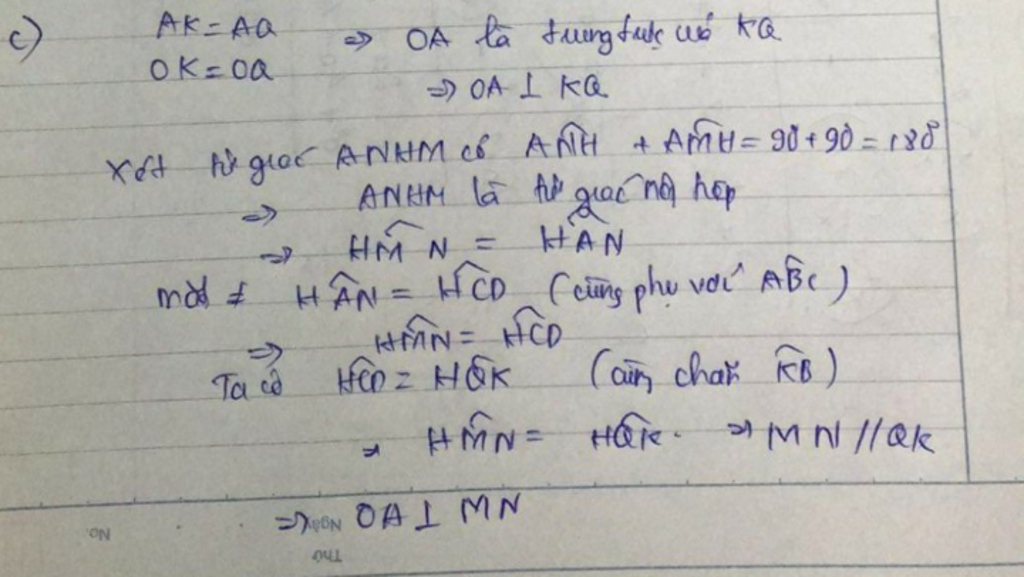 c) AK = AQ ⇒ OA là trung trực của KQ
OK = OQ ⇒ OA ⊥ KQ
Xét tứ giác ANHM có AN̂H + AM̂H = 90 + 90 = 180°
⇒ ANHM là tứ giác nội tiếp
⇒ HM̂N = HÂN
mà HÂN = HĈD (cùng phụ với AB̂C)
⇒ HM̂N = HĈD
Ta có HĈD = HQ̂K (cùng chắn K͡B)
⇒ HM̂N = HQ̂K. ⇒ MN // QK
⇒ OA ⊥ MN
No
Ngày
Thứ